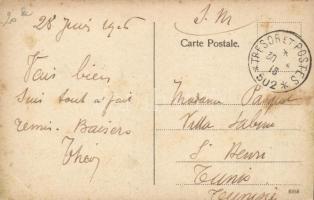 28 Juin 1916
F. M
Carte Postale.
TRESOR ET POSTES
30
16
* 502 *
Vais bien
Suis tout à fait
remis. Baisers
Madame
Villa Sabine
St Henri
Tunis
Tunisie